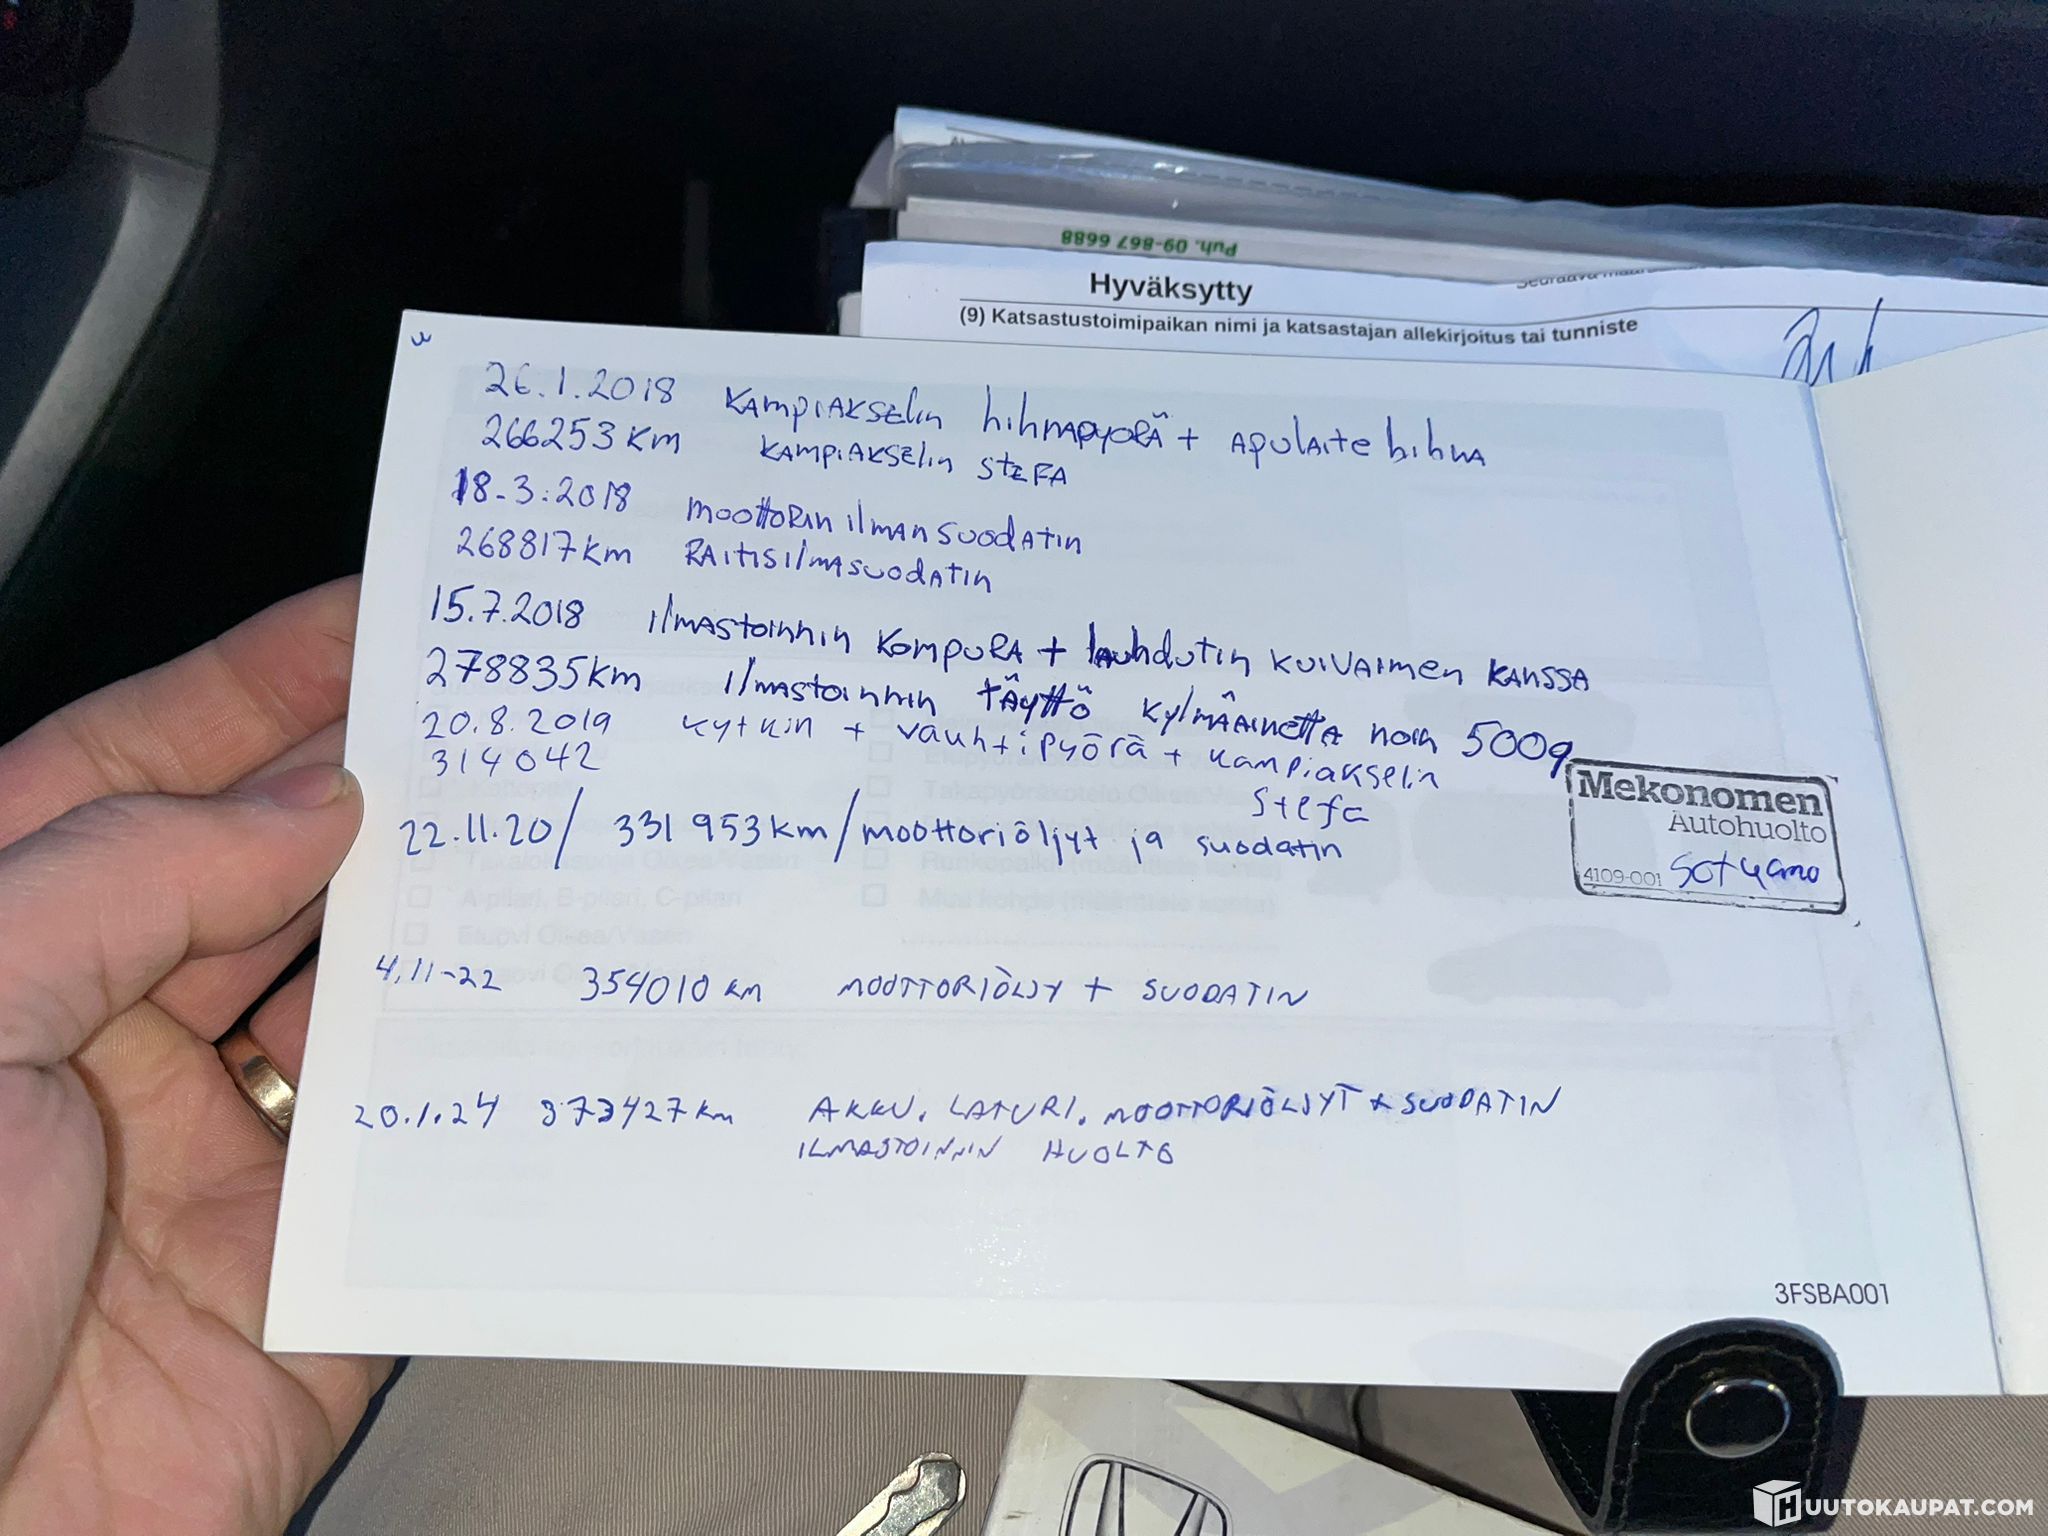 Puh. 09-867 6688
Hyväksytty
(9) Katsastustoimipaikan nimi ja katsastajan allekirjoitus tai tunniste
26.1.2018 KAMPIAKSELIN hihnapyörä + APULAITE hihna
266253 KM KAMPIAKSELIN STEFA
18-3.2018 MOOTTORIN ILMANSUODATIN
268817 KM RAITISILMASUODATIN
15.7.2018 ILMASTOINNIN KOMPURA + LAUHDUTIN KUIVAIMEN KANSSA
278835 KM ILMASTOINNIN TÄYTTÖ KYLMÄAINETTA noin 500g
20.8.2019 kytkin + vauhtipyörä + kampiakselin
314042 Stefa
22.11.20/ 331 953 km/moottoriöljyt ja suodatin
Mekonomen
Autohuolto
4109-001
4.11-22 354010 KM MOOTTORIÖLJY + SUODATIN
20.1.24 373427 KM AKKU, LATURI, MOOTTORIÖLJYT + SUODATIN
ILMASTOINNIN HUOLTO
3FSBA001
HUUTOKAUPAT.COM